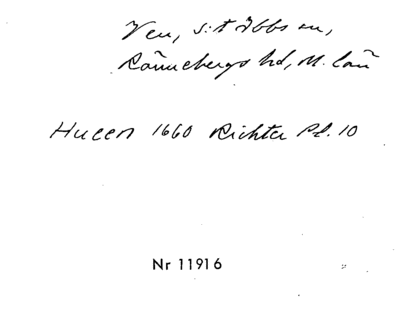 Ven, S:t Ibbs sn,
Rönnebergs hd, M. län
Hueen 1660 Richter Pl. 10
Nr 11916